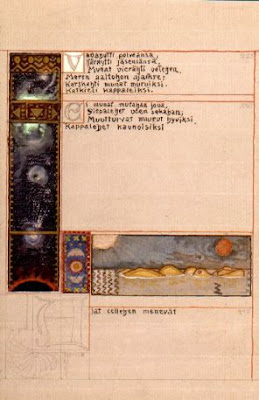 Vavautti polveansa,
Järkytti jäseniänsä,
Munat vierähti vetehen,
Meren aaltohon ajaikse;
Karskahti munat muruiksi,
Katkieli kappaleiksi.
Ei munat mutahan joua,
Siepalehet veen sekahan;
Muuttuivat murut hyviksi,
Kappalehet kaunoisiksi
jat eellehen menevät